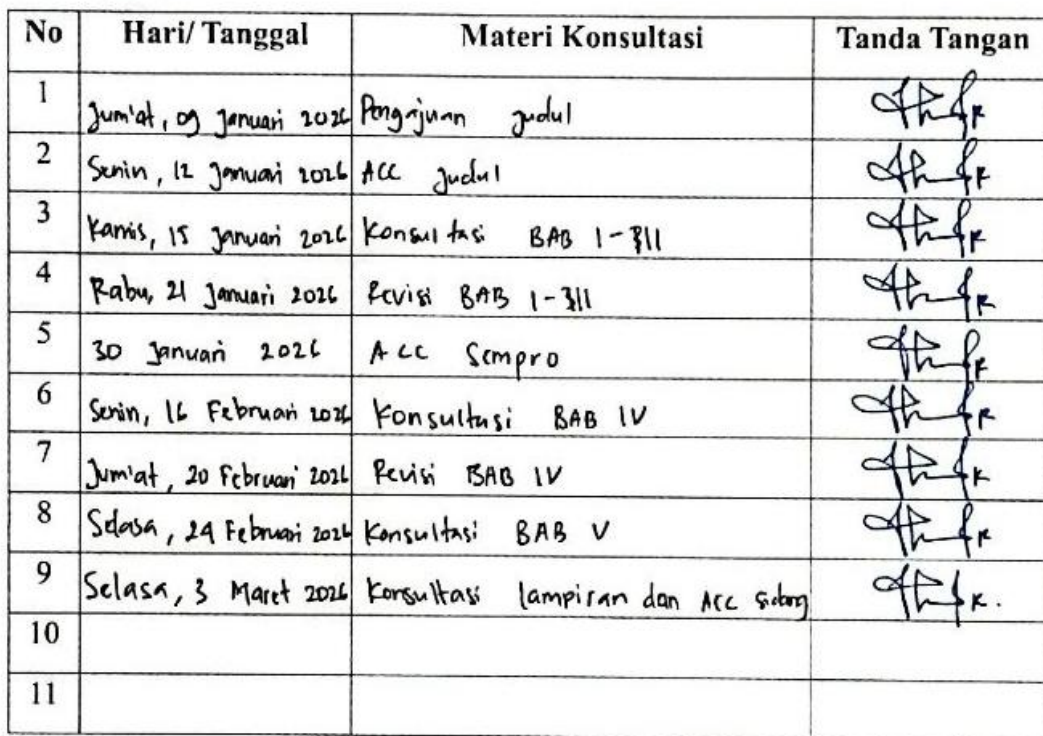 No Hari/ Tanggal Materi Konsultasi Tanda Tangan
1 Jum'at, 09 Januari 2026 Pengajuan judul
2 Senin, 12 Januari 2026 ACC judul
3 Kamis, 15 Januari 2026 Konsultasi BAB I - III
4 Rabu, 21 Januari 2026 Revisi BAB I - III
5 30 Januari 2026 ACC Sempro
6 Senin, 16 Februari 2026 Konsultasi BAB IV
7 Jum'at, 20 Februari 2026 Revisi BAB IV
8 Selasa, 24 Februari 2026 Konsultasi BAB V
9 Selasa, 3 Maret 2026 Konsultasi lampiran dan Acc Sidang
10
11